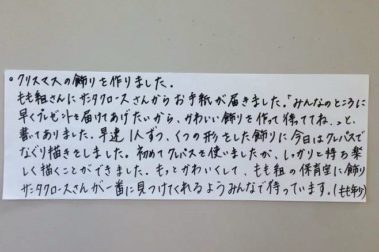 ○クリスマスの飾りを作りました。
もも組さんにサンタクロースさんからお手紙が届きました。「みんなのところに
早くプレゼントを届けてあげたいから、かわいい飾りを作って待っててね。」と、
書いてありました。早速1人ずつ、くつの形をした飾りに今日はクレパスで
なぐり描きをしました。初めてクレパスを使いましたが、しっかりと持ち楽
しく描くことができました。もっとかわいくして、もも組の保育室に飾り
サンタクロースさんが一番に見つけてくれるようみんなで待っています。(もも